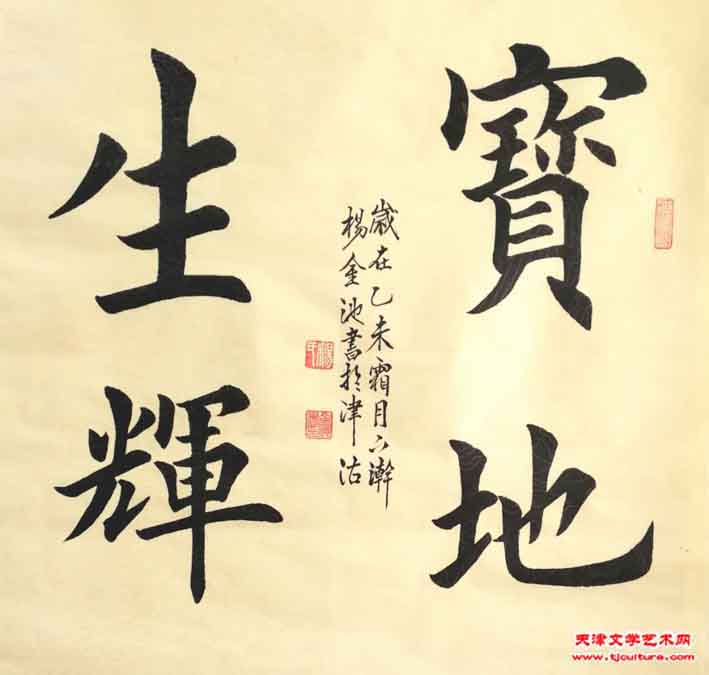 寶地
生輝
歲在乙未霜月下澣
楊金池書於津沽
天津文学艺术网
www.tjculture.com